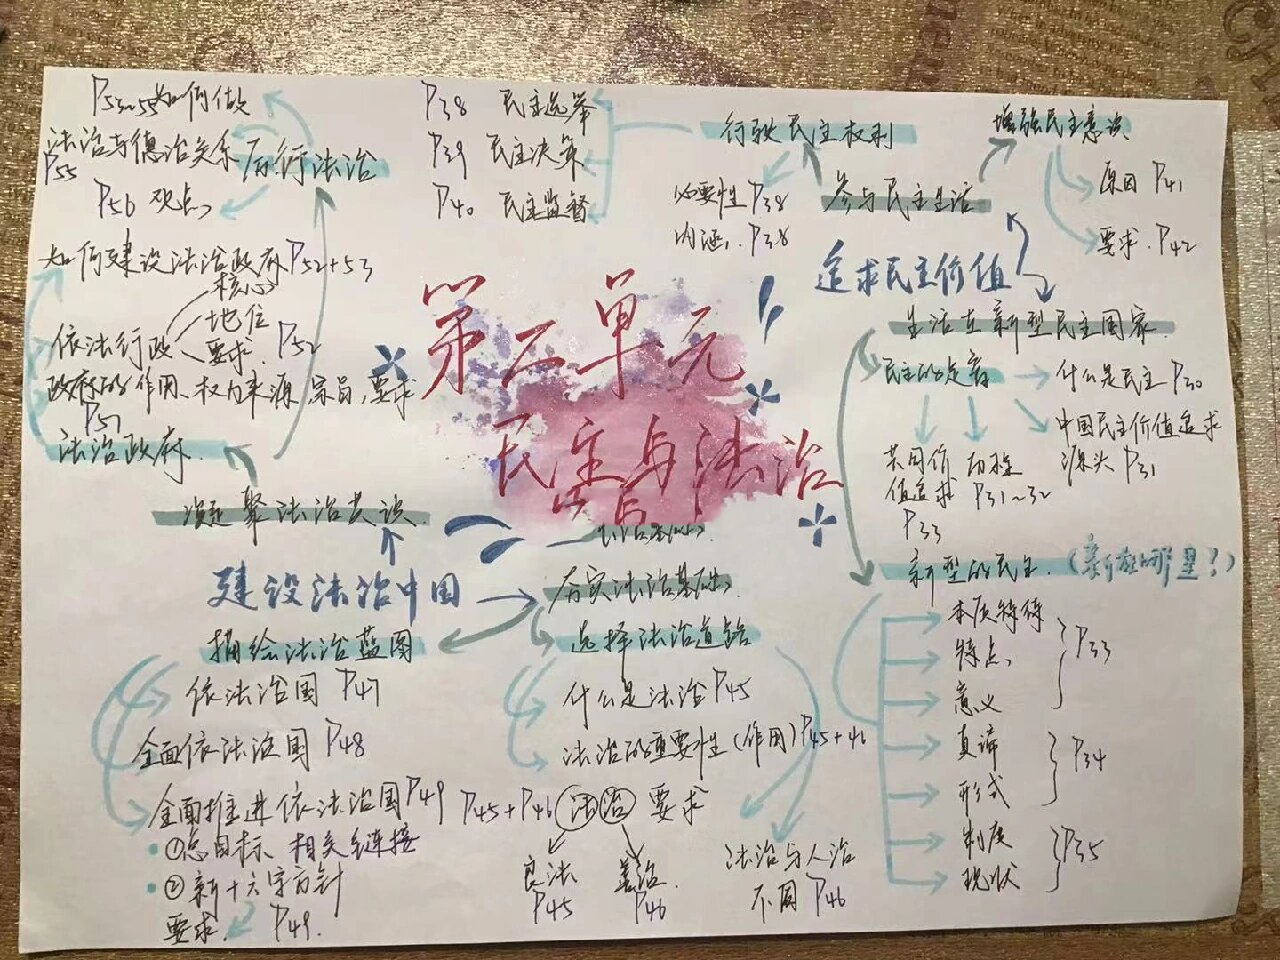 第二单元
民主与法治
追求民主价值
生活在新型民主国家
民主的足音
什么是民主 P30
中国民主价值追求
源头 P31
历程
P31~32
共同价
值追求
P33
新型的民主 (新在哪里?)
本质特征
特点
意义
P33
真谛
形式
P34
制度
现状
P35
参与民主生活
行驶民主权利
必要性 P38
内涵 P38
P38 民主选举
P39 民主决策
P40 民主监督
增强民主意识
原因 P41
要求 P42
建设法治中国
夯实法治基础
选择法治道路
什么是法治 P45
法治的重要性(作用)P45+46
P45+P46 法治 要求
良法
P45
善治
P46
法治与人治
不同 P46
描绘法治蓝图
依法治国 P47
全面依法治国 P48
全面推进依法治国 P49
①总目标 相关链接
②新十六字方针
要求 P49
凝聚法治共识
法治政府
P51
政府的作用、权力来源、宗旨,要求
依法行政
核心
地位
要求 P52
如何建设法治政府 P52+53
厉行法治
P53~55 如何做
法治与德治关系
P55
P56 观点